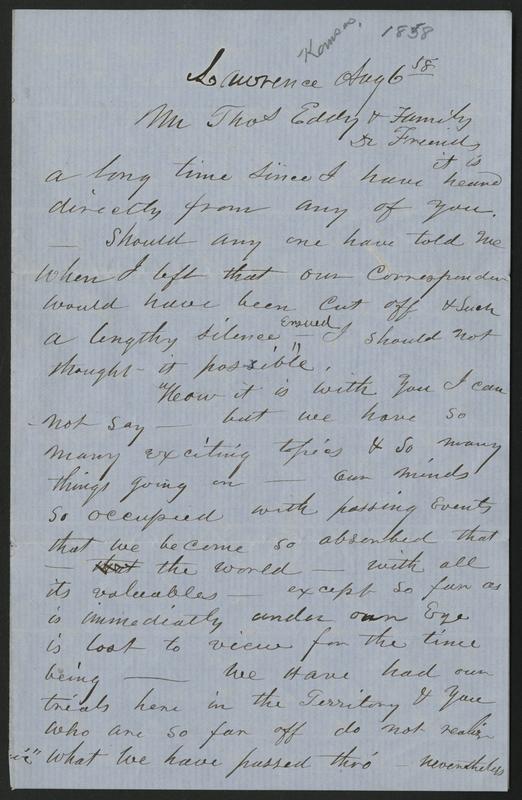 Kansas. 1858
Lawrence Aug 6 58
Mr Thos Eddy & Family
Dr Friends
it is
a long time since I have heard
directly from any of you.
— Should any one have told me
when I left that our Correspondin
would have been Cut off & Such
a lengthy silence Ensued I should not
thought it possible.
"How it is with you I can
not say — but we have so
many exciting topics & so many
things going on — our minds
so occupied with passing Events
that we become so absorbed that
— that the world — with all
its valuables — except so far as
is immediatly under our Eye
is lost to view for the time
being — We Have had our
trials here in the Territory & you
who are so far off do not realize
what we have passed thro' — nevertheless